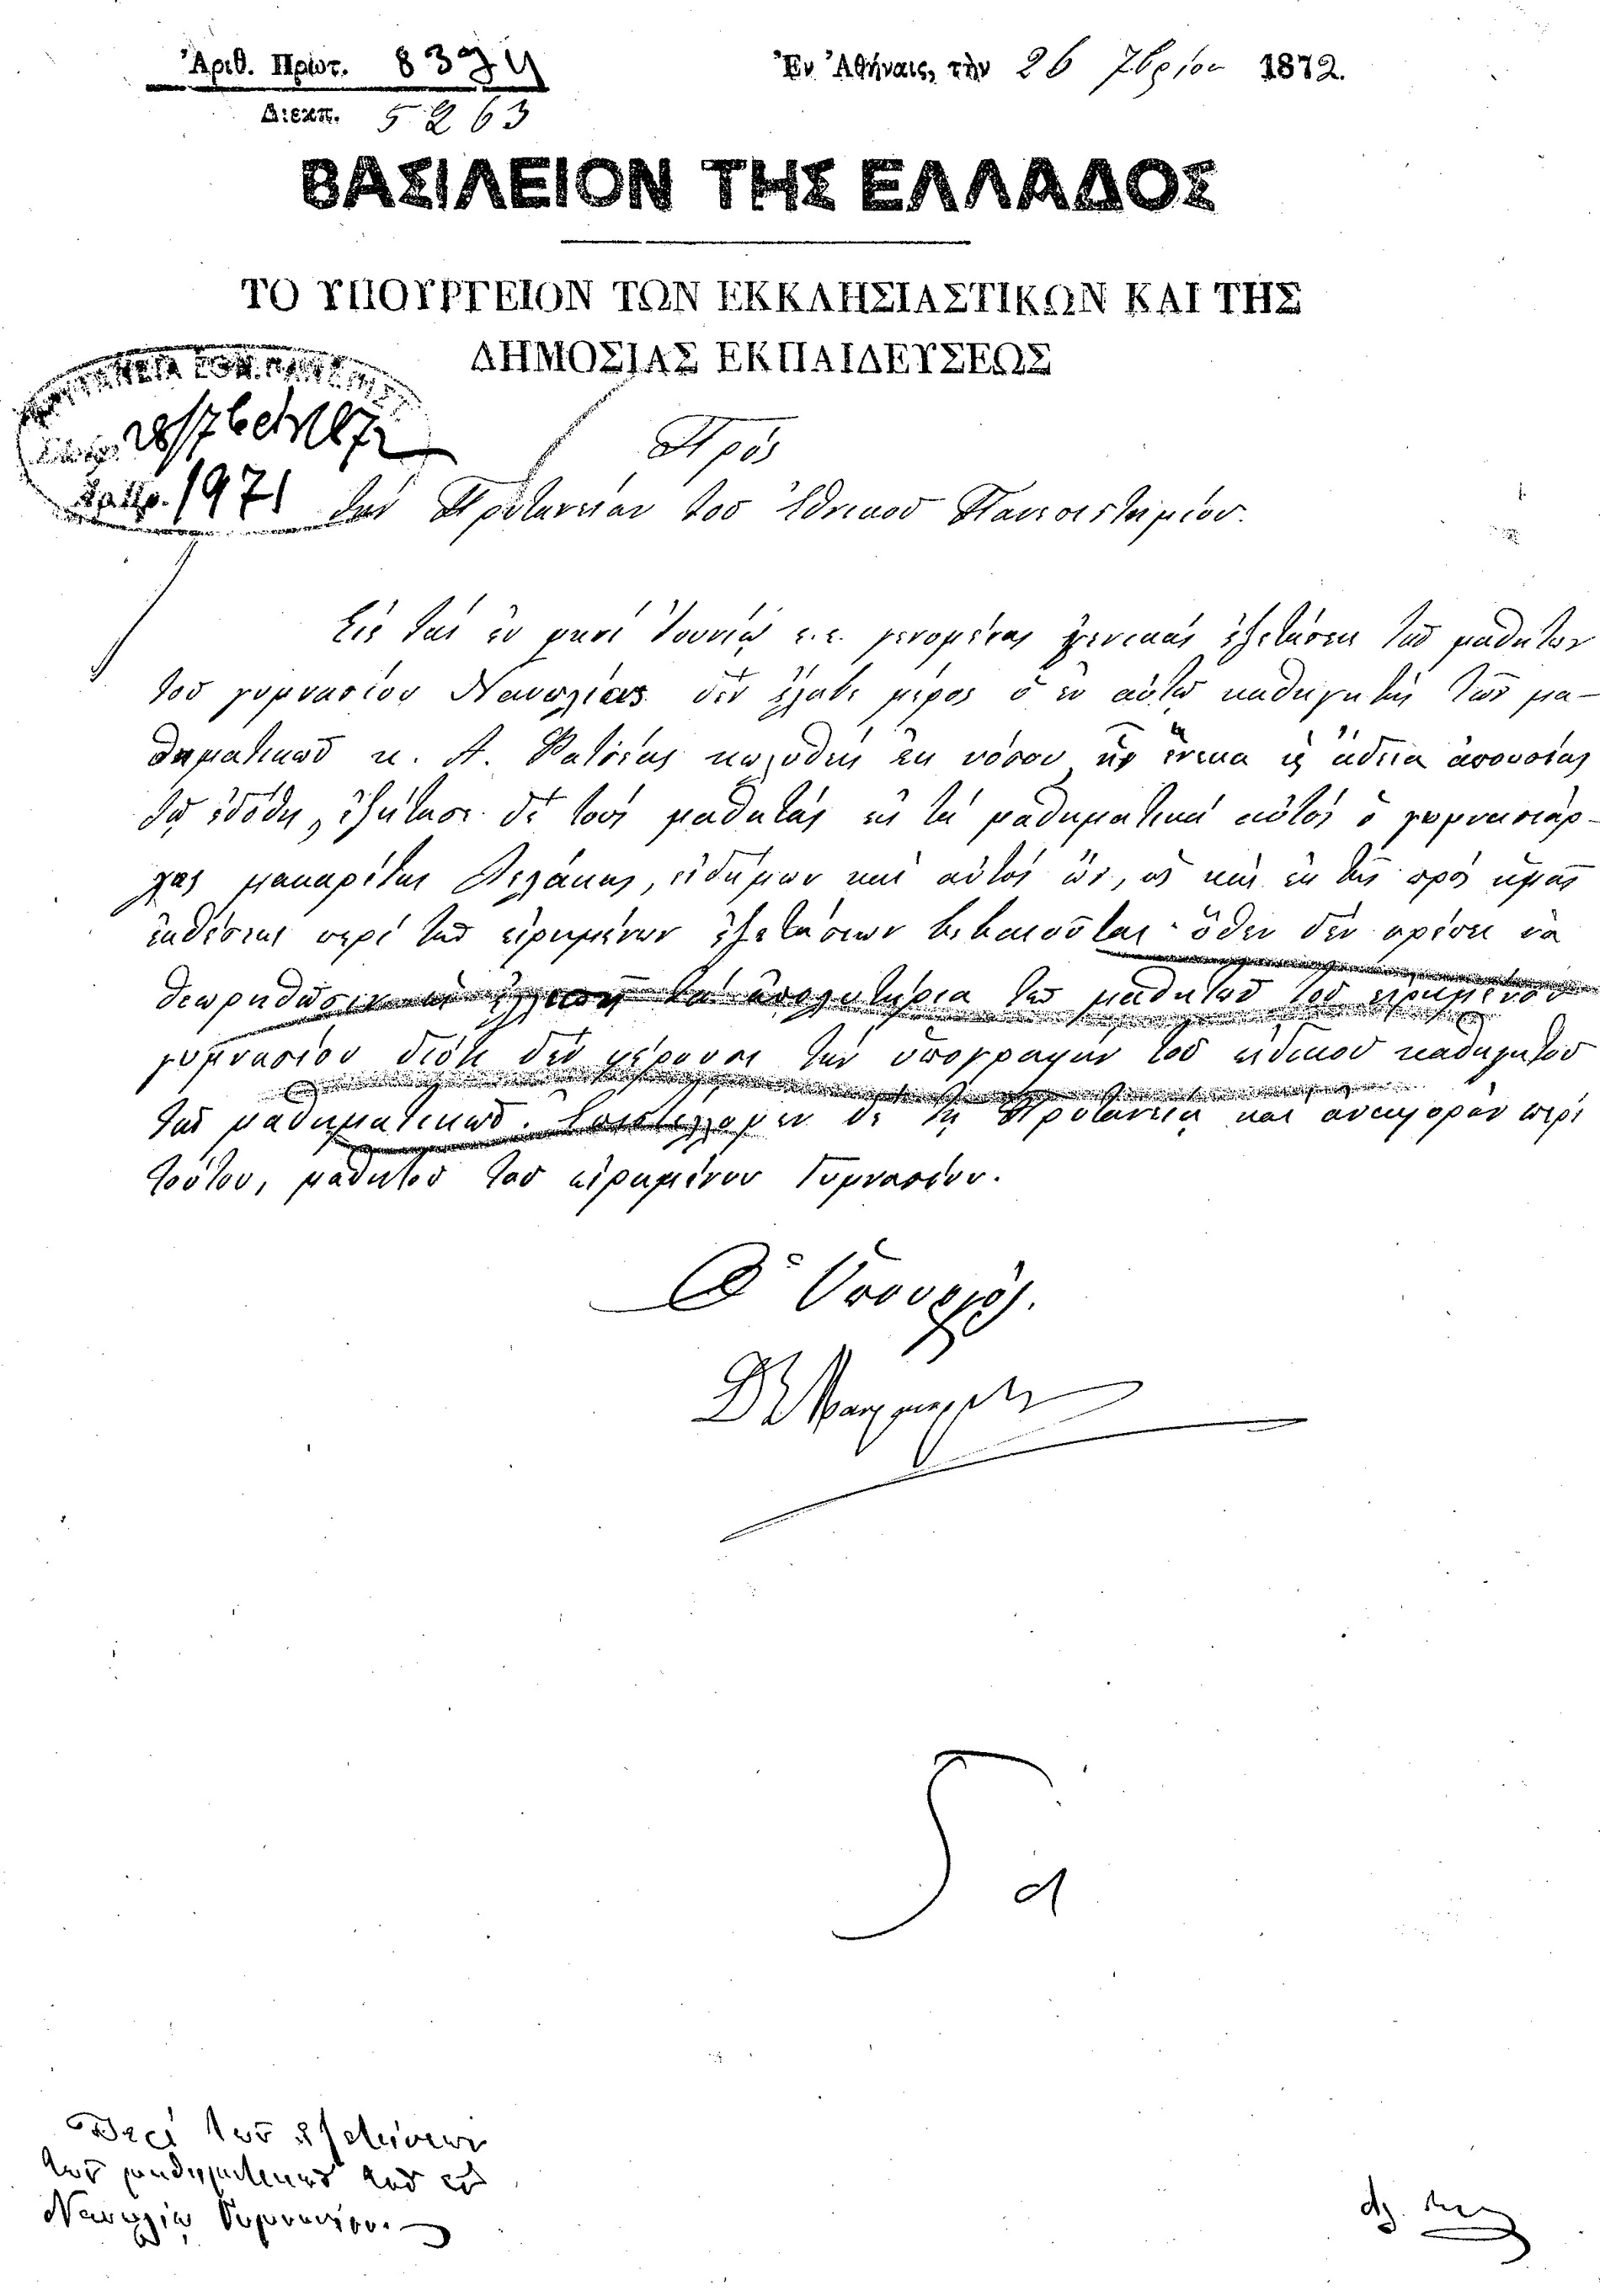 Ἀριθ. Πρωτ. 8374
Διεκπ. 5263
Ἐν Ἀθήναις, τὴν 26 7βρίου 1872.
ΒΑΣΙΛΕΙΟΝ ΤΗΣ ΕΛΛΑΔΟΣ
ΤΟ ΥΠΟΥΡΓΕΙΟΝ ΤΩΝ ΕΚΚΛΗΣΙΑΣΤΙΚΩΝ ΚΑΙ ΤΗΣ
ΔΗΜΟΣΙΑΣ ΕΚΠΑΙΔΕΥΣΕΩΣ
ΠΡΥΤΑΝΕΙΑ ΕΘΝ. ΠΑΝΕΠΙΣΤ.
1971
Πρὸς
τὴν Πρυτανείαν τοῦ Ἐθνικοῦ Πανεπιστημίου.
Εἰς τὰς ἐν μηνὶ Ἰουνίῳ ἐ.ἔ. γενομένας γενικὰς ἐξετάσεις τῶν μαθητῶν
τοῦ γυμνασίου Ναυπλίας δὲν ἔλαβε μέρος ὁ ἐν αὐτῷ καθηγητὴς τῶν μα-
θηματικῶν κ. Α. κωλυθεὶς ἐκ νόσου, ἧς ἕνεκα καὶ ἄδεια ἀπουσίας
τῷ ἐδόθη, ἐξήτασε δὲ τοὺς μαθητὰς εἰς τὰ μαθηματικὰ αὐτὸς ὁ γυμνασιάρ-
χης μακαρίτης εἰδήμων καὶ αὐτὸς ὤν, ὡς καὶ ἐκ τῆς πρὸς ἡμᾶς
ἐκθέσεως περὶ τῶν εἰρημένων ἐξετάσεων βεβαιοῦται· ὅθεν δὲν πρέπει νὰ
θεωρηθῶσιν ὡς ἐλλιπῆ τὰ ἀπολυτήρια τῶν μαθητῶν τοῦ εἰρημένου
γυμνασίου διότι δὲν φέρουσι τὴν ὑπογραφὴν τοῦ εἰδικοῦ καθηγητοῦ
τῶν μαθηματικῶν. Ἐπιστέλλομεν δὲ τῇ Πρυτανείᾳ καὶ ἀναφορὰν περὶ
τούτου, μαθητοῦ τοῦ εἰρημένου Γυμνασίου.
Ὁ Ὑπουργὸς.
Περὶ τῶν ἐξετάσεων
τῶν μαθηματικῶν τοῦ ἐν
Ναυπλίᾳ Γυμνασίου.